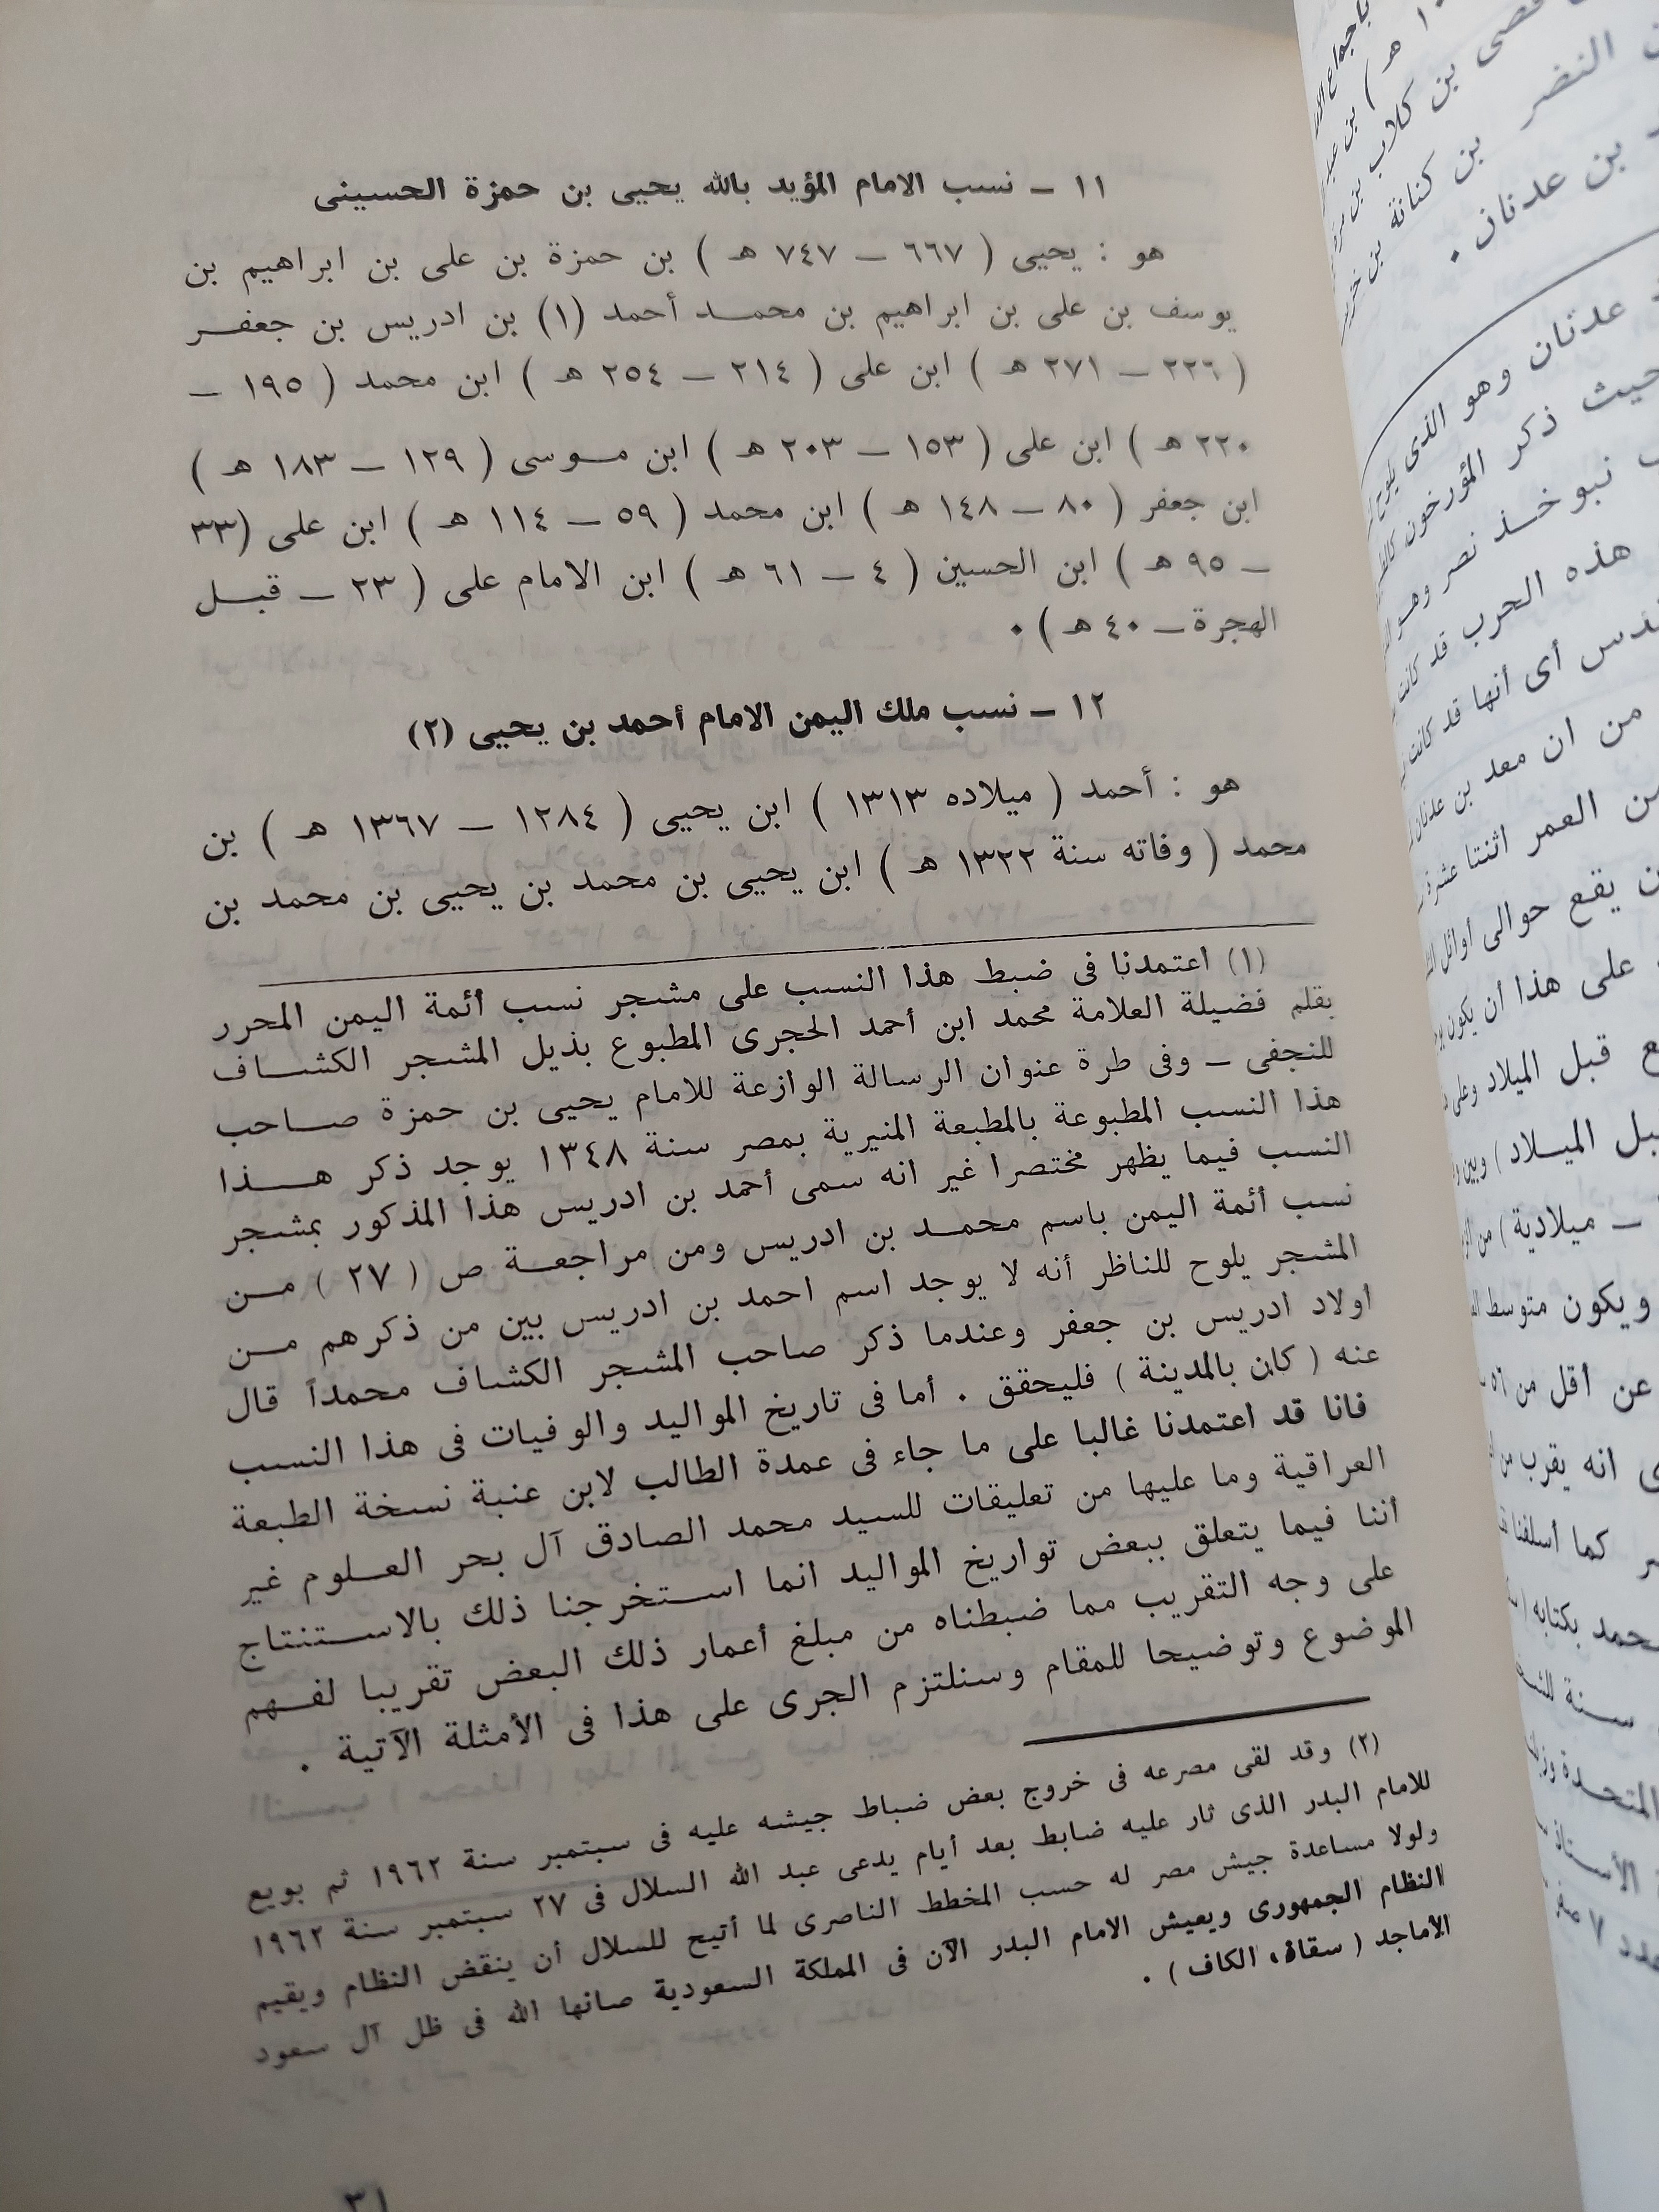 ١١ ــ نسب الامام المؤيد بالله يحيى بن حمزة الحسينى
هو : يحيى ( ٦٦٧ ــ ٧٤٧ هـ ) بن حمزة بن على بن ابراهيم بن
يوسف بن على بن ابراهيم بن محمــد أحمد (١) بن ادريس بن جعفــر
( ٢٢٦ ــ ٢٧١ هـ ) ابن على ( ٢١٤ ــ ٢٥٤ هـ ) ابن محمد ( ١٩٥ ــ
٢٢٠ هـ ) ابن على ( ١٥٣ ــ ٢٠٣ هـ ) ابن مــوسى ( ١٢٩ ــ ١٨٣ هـ )
ابن جعفر ( ٨٠ ــ ١٤٨ هـ ) ابن محمد ( ٥٩ ــ ١١٤ هـ ) ابن على (٣٣
ــ ٩٥ هـ ) ابن الحسين ( ٤ ــ ٦١ هـ ) ابن الامام على ( ٢٣ ــ قبــل
الهجرة ــ ٤٠ هـ ) ٠
١٢ ــ نسب ملك اليمن الامام أحمد بن يحيى (٢)
هو : أحمد ( ميلاده ١٣١٣ ) ابن يحيى ( ١٢٨٤ ــ ١٣٦٧ هـ ) بن
محمد ( وفاته سنة ١٣٢٢ هـ ) ابن يحيى بن محمد بن يحيى بن محمد بن
(١) اعتمدنا فى ضبط هذا النسب على مشجر نسب أئمة اليمن المحرر
بقلم فضيلة العلامة محمد ابن أحمد الحجرى المطبوع بذيل المشجر الكشــاف
للنجفى ــ وفى طرة عنوان الرسالة الوازعة للامام يحيى بن حمزة صــاحب
هذا النسب المطبوعة بالمطبعة المنيرية بمصر سنة ١٣٤٨ يوجد ذكر هــذا
النسب فيما يظهر مختصرا غير انه سمى أحمد بن ادريس هذا المذكور بمشجر
نسب أئمة اليمن باسم محمــد بن ادريس ومن مراجعــة ص ( ٢٧ ) مــن
المشجر يلوح للناظر أنه لا يوجد اسم احمد بن ادريس بين من ذكرهم مــن
اولاد ادريس بن جعفر وعندما ذكر صاحب المشجر الكشاف محمداً قال
عنه ( كان بالمدينة ) فليحقق ٠ أما فى تاريخ المواليد والوفيات فى هذا النسب
فانا قد اعتمدنا غالبا على ما جاء فى عمدة الطالب لابن عنبة نسخة الطبعة
العراقية وما عليها من تعليقات للسيد محمد الصادق آل بحر العــلوم غير
أننا فيما يتعلق ببعض تواريخ المواليد انما اســتخرجنا ذلك بالاســتنتاج
على وجه التقريب مما ضبطناه من مبلغ أعمار ذلك البعض تقريبا لفــهم
الموضوع وتوضيحا للمقام وسنلتزم الجرى على هذا فى الأمثلة الآتية ٠
(٢) وقد لقى مصرعه فى خروج بعض ضباط جيشه عليه فى سبتمبر سنة ١٩٦٢ ثم بويع
للامام البدر الذى ثار عليه ضابط بعد أيام يدعى عبد الله السلال فى ٢٧ سبتمبر سنة ١٩٦٢
ولولا مساعدة جيش مصر له حسب المخطط الناصرى لما أتيح للسلال أن ينقض النظام ويقيم
النظام الجمهورى ويعيش الامام البدر الآن فى المملكة السعودية صانها الله فى ظل آل سعود
الأماجد ( سقاف الكاف ) ٠
٣١
قصى بن كلاب بن
النضر بن كنانة بن
بن عدنان ٠
عدنان وهو الذى يلوح
حيث ذكر المؤرخون
نبوخــذ نصر وهــو
هذه الحرب قد كانت
أى أنها قد كانت
من ان معد بن عدنان
من العمر اثنتا عشرة
يقع حوالى أوائل
على هذا أن يكون
قبل الميلاد وعلى
الميــلاد ) وبين
ــ ميلادية ) من
ويكون متوسط
عن أقل من ٥٦
انه يقرب من
كما أسلفنا
بكتابه
سنة
المتحــدة